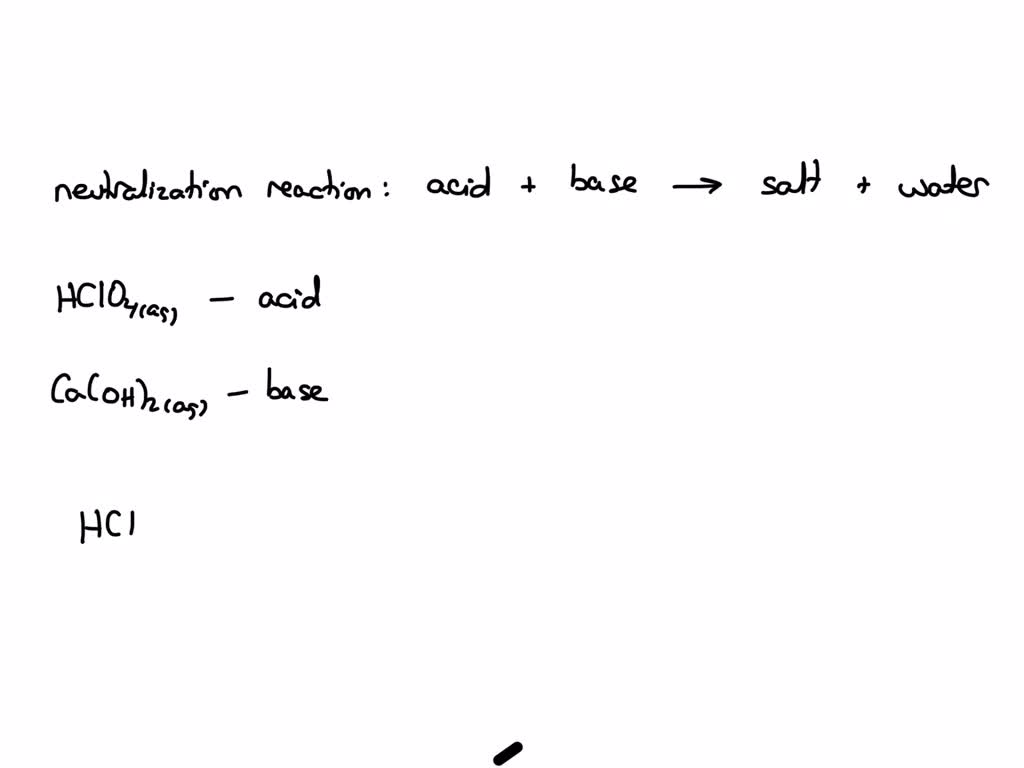 neutralization reaction: acid + base → salt + water
HClO4(aq) – acid
Ca(OH)2(aq) – base
HCl